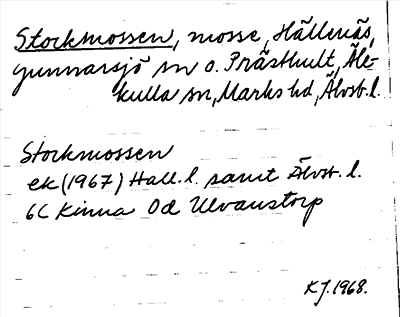 Stockmossen, mosse, Hällenäs,
Gunnarsjö sn o. Prästhult, Äle-
kulla sn, Marks hd, Älvsb. l.
Stockmossen
ek (1967) Hall. l. samt Älvsb. l.
6C Kinna 0d Ulvanstorp
KJ. 1968.